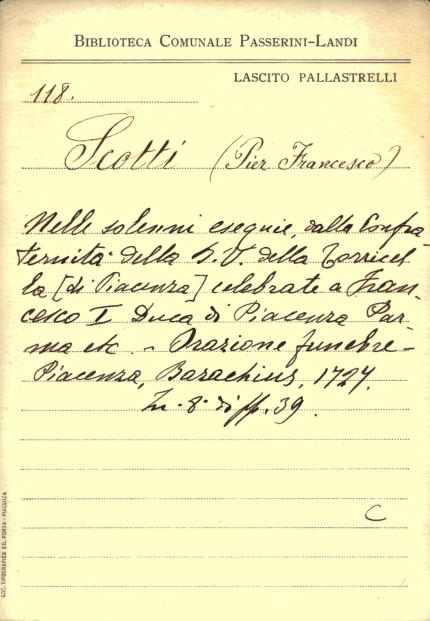 BIBLIOTECA COMUNALE PASSERINI-LANDI
LASCITO PALLASTRELLI
118.
Scotti (Pier Francesco)
Nelle solenni esequie, dalla Confra-
ternita della B. V. della Torricel-
la [di Piacenza] celebrate a Fran-
cesco I Duca di Piacenza Par-
ma etc. - Orazione funebre -
Piacenza, Bazachius, 1727.
In-8° di ff. 39.
C
SOC. TIPOGRAFICA ED. PORTA - PIACENZA